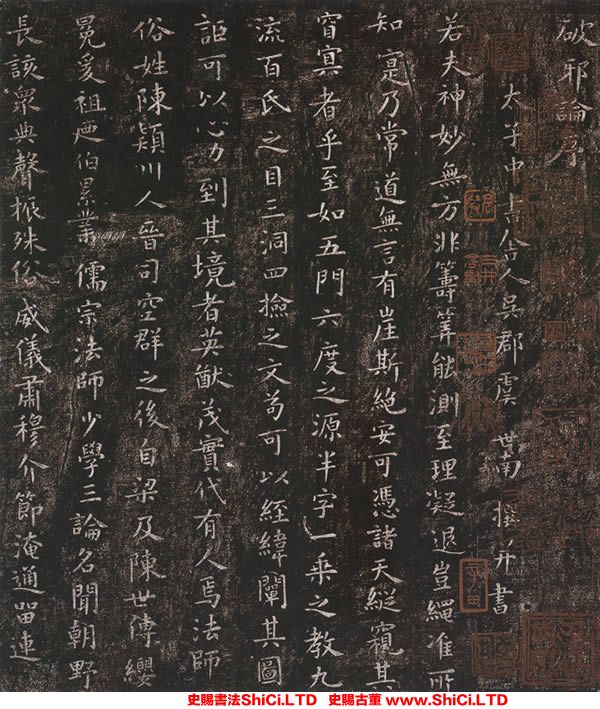 破邪論序
太子中書舍人吳郡虞世南撰并書
若夫神妙無方非籌筭能測至理凝退豈繩准所
知寔乃常道無言有崖斯絕安可憑諸天縱窺其
窅寞者乎至如五門六度之源半字一乘之教九
流百氏之目三洞四撿之文苟可以經緯闡其圖
詎可以心力到其境者英猷茂實代有人焉法師
俗姓陳潁川人晉司空群之後自梁及陳世傳纓
冕爰祖迺伯累業儒宗法師少學三論名聞朝野
長該衆典聲振殊俗威儀肅穆介節淹通留連
史賜書法ShiCi.LTD 史賜古董 www.ShiCi.LTD